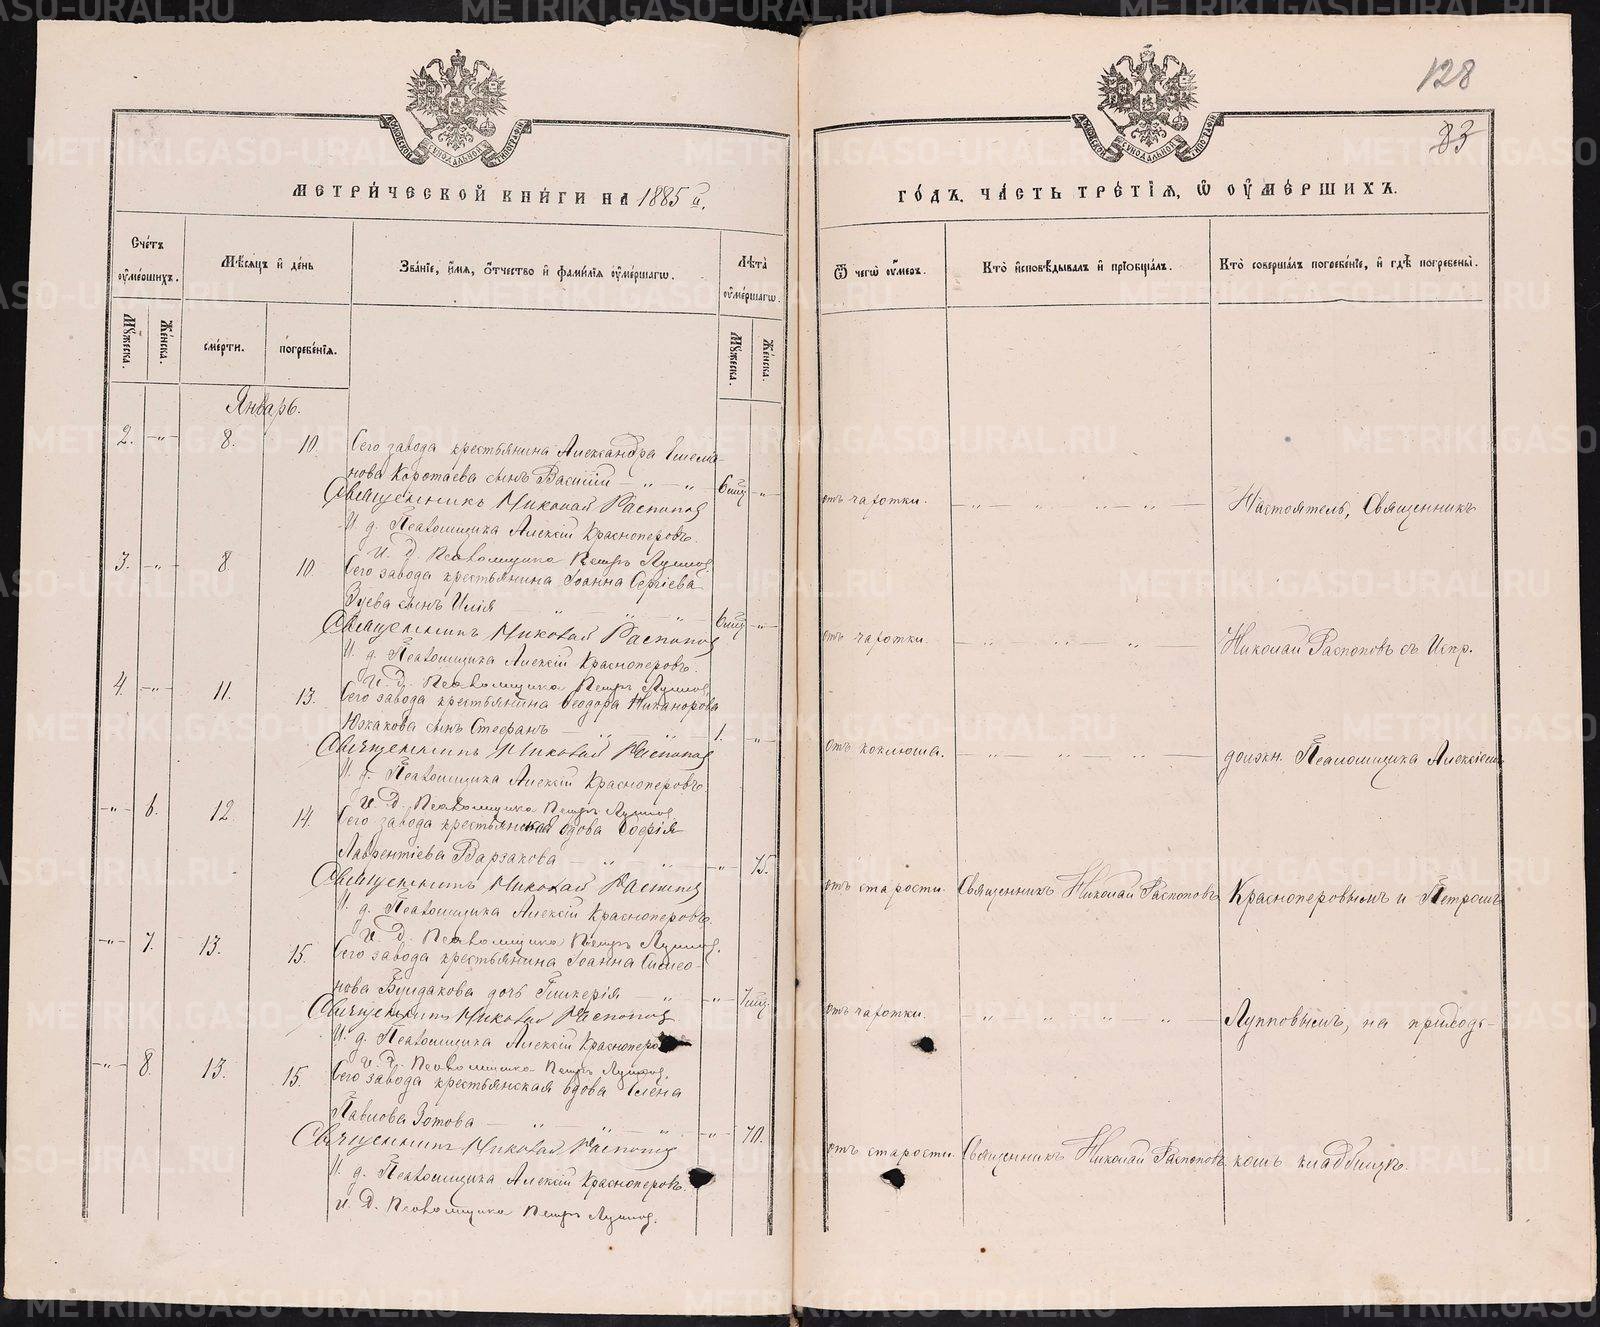 128
83
МЕТРИ́ЧЕСКОЙ КНИ́ГИ НА 1885 й.
Сче́тъ ᲂу҆ме́ршихъ.
Мѣ́сяцъ и҆ де́нь
Зва́нїе, и҆́мя, ѻ҆́тчество и҆ фами́лїя ᲂу҆ме́ршагѡ.
Лѣ́та ᲂу҆ме́ршагѡ.
Мꙋ́жеска.
Же́нска.
сме́рти.
погребе́нїя.
Мꙋ́жеска.
Же́нска.
Январь.
2. -"- 8. 10. Сего завода крестьянина Александра
нова Коротаева сынъ Василій - " - " 6 мц -"-
Священникъ Николай Распоповъ
И. д. Псаломщика Алексій Красноперовъ.
И. Д. Псаломщика Петръ Лупповъ
3. -"- 8 10. Сего завода крестьянина Іоанна Сергіева
Зуева сынъ Илія 6 мц -"-
Священникъ Николай Распоповъ
И. д. Псаломщика Алексій Красноперовъ.
И. Д. Псаломщика Петръ Лупповъ
4. -"- 11. 13. Сего завода крестьянина Ѳеодора Никанорова
Южакова сынъ Стефанъ 1. "
Священникъ Николай Распоповъ
И. д. Псаломщика Алексій Красноперовъ
И. Д. Псаломщика Петръ Лупповъ
-"- 6. 12. 14. Сего завода крестьянская вдова Софія
Лаврентіева Варзакова - " - " -"- 75.
Священникъ Николай Распоповъ
И. д. Псаломщика Алексій Красноперовъ.
И. Д. Псаломщика Петръ Лупповъ.
-"- 7. 13. 15. Сего завода крестьянина Іоанна Симео-
нова Булдакова дочь Гликерія - " -"- 7 мц
Священникъ Николай Распоповъ
И. д. Псаломщика Алексій Красноперовъ
И. Д. Псаломщика Петръ Лупповъ.
-"- 8. 13. 15. Сего завода крестьянская вдова Елена
Павлова Зотова -"- 70.
Священникъ Николай Распоповъ
И. д. Псаломщика Алексій Красноперовъ.
И. Д. Псаломщика Петръ Лупповъ.
ГО́ДЪ, ЧА́СТЬ ТРЕ́ТЇЯ, Ѡ҆ ОУ҆МЕ́РШИХЪ.
Ѿ чегѡ̀ ᲂу҆́меръ.
Кто̀ и҆сповѣ́дывалъ и҆ прїѻбща́лъ.
Кто̀ соверша́лъ погребе́нїе, и҆ гдѣ̀ погребены̀.
отъ чахотки. Настоятель, Священникъ
отъ чахотки. Николай Распоповъ съ Испр.
отъ коклюша. должн. Псаломщика Алексіемъ
отъ старости. Священникъ Николай Распоповъ Красноперовымъ и Петромъ
отъ чахотки. Лупповымъ, на приходс-
отъ старости. Священникъ Николай Распоповъ комъ кладбищѣ.
METRIKI.GASO-URAL.RU